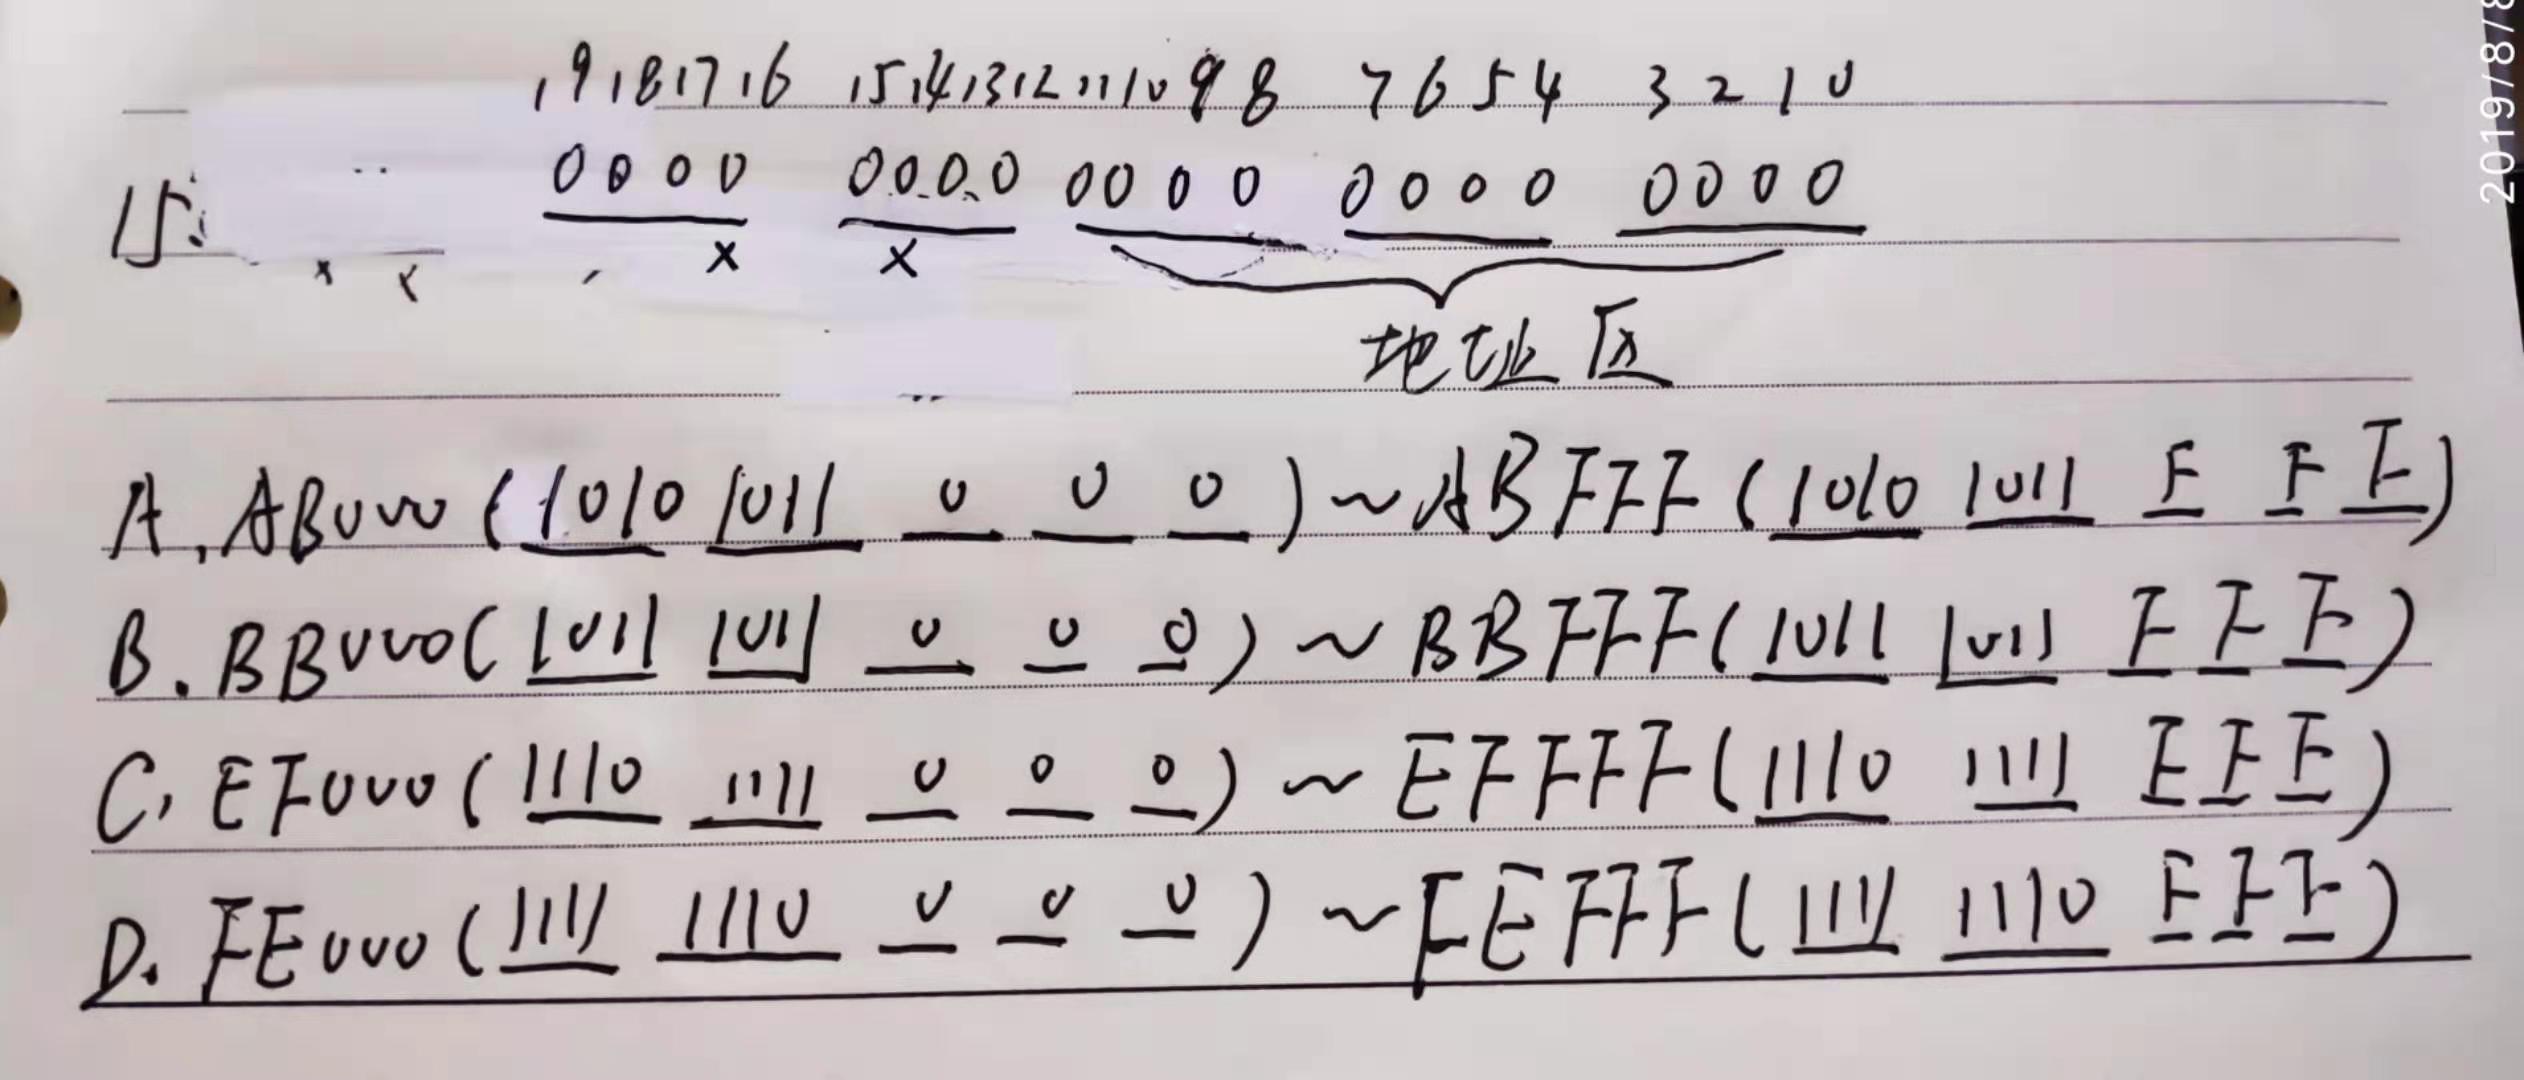 19 18 17 16 15 14 13 12 11 10 9 8 7 6 5 4 3 2 1 0
15: 0000 0000 0000 0000 0000
x x x x
地址区
A. AB000 (1010 1011 0 0 0) ~ ABFFF (1010 1011 F F F)
B. BB000 (1011 1011 0 0 0) ~ BBFFF (1011 1011 F F F)
C. EF000 (1110 1111 0 0 0) ~ EFFFF (1110 1111 F F F)
D. FE000 (1111 1110 0 0 0) ~ FEFFF (1111 1110 F F F)
2019/8/8